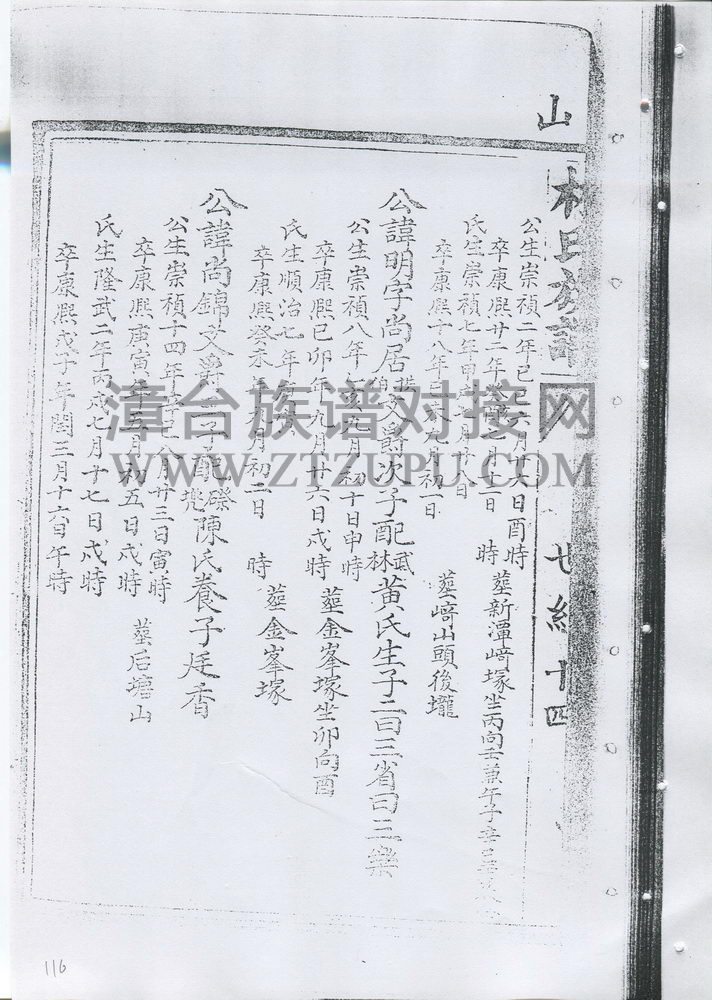 山
林氏族譜
七 十四
公生崇禎二年己巳六月十六日酉時
卒康熙廿二年 月十二日 時 葬新潭﨑塚坐丙向壬兼午子
氏生崇禎七年甲 月十八日
卒康熙十八年己未九月初一日 葬﨑山頭後壠
公諱明字尚居 文爵次子配武林黃氏生子二曰三省曰三樂
公生崇禎八年乙亥九月初十日申時
卒康熙己卯年九月廿六日戌時 葬金峯塚坐卯向酉
氏生順治七年
卒康熙癸未年九月初二日 時 葬金峯塚
公諱尚錦文爵三子配磜兠陳氏養子廷香
公生崇禎十四年辛巳八月廿三日寅時
卒康熙庚寅年五月初五日戌時 葬后塘山
氏生隆武二年丙戌七月十七日戌時
卒康熙戊子年閏三月十六日午時
漳台族谱对接网
WWW.ZTZUPU.COM
116